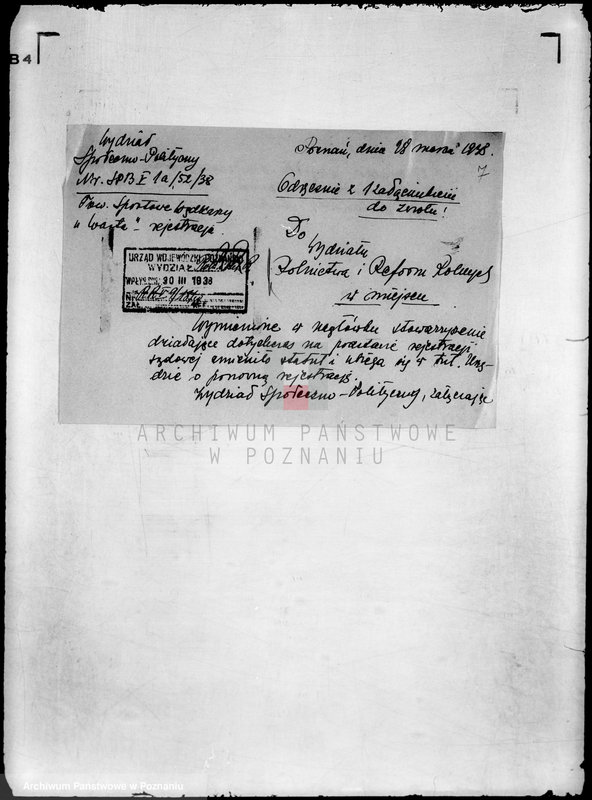 B4
Wydział
Społeczno-Polityczny
Nr. SPB I 1a/52/38
Tow. Sportowe Wędkarzy
„Warta" - rejestracja.
Poznań, dnia 28 marca 1938.
7
Odręcznie z 1 załącznikiem
do zwrotu!
Do
Wydziału
Rolnictwa i Reform Rolnych
w miejscu
URZĄD WOJEWÓDZKI POZNAŃSKI
WYDZIAŁ
WPŁYNĘŁO: 30 III 1938
Nr.
ZAŁ. REF.
Wymienione w nagłówku stowarzyszenie
działające dotychczas na podstawie rejestracji
sądowej zmieniło statut i ubiega się w tut. Urzę-
dzie o ponowną rejestrację.
Wydział Społeczno-Polityczny, załączając
ARCHIWUM PAŃSTWOWE
W POZNANIU
Archiwum Państwowe w Poznaniu